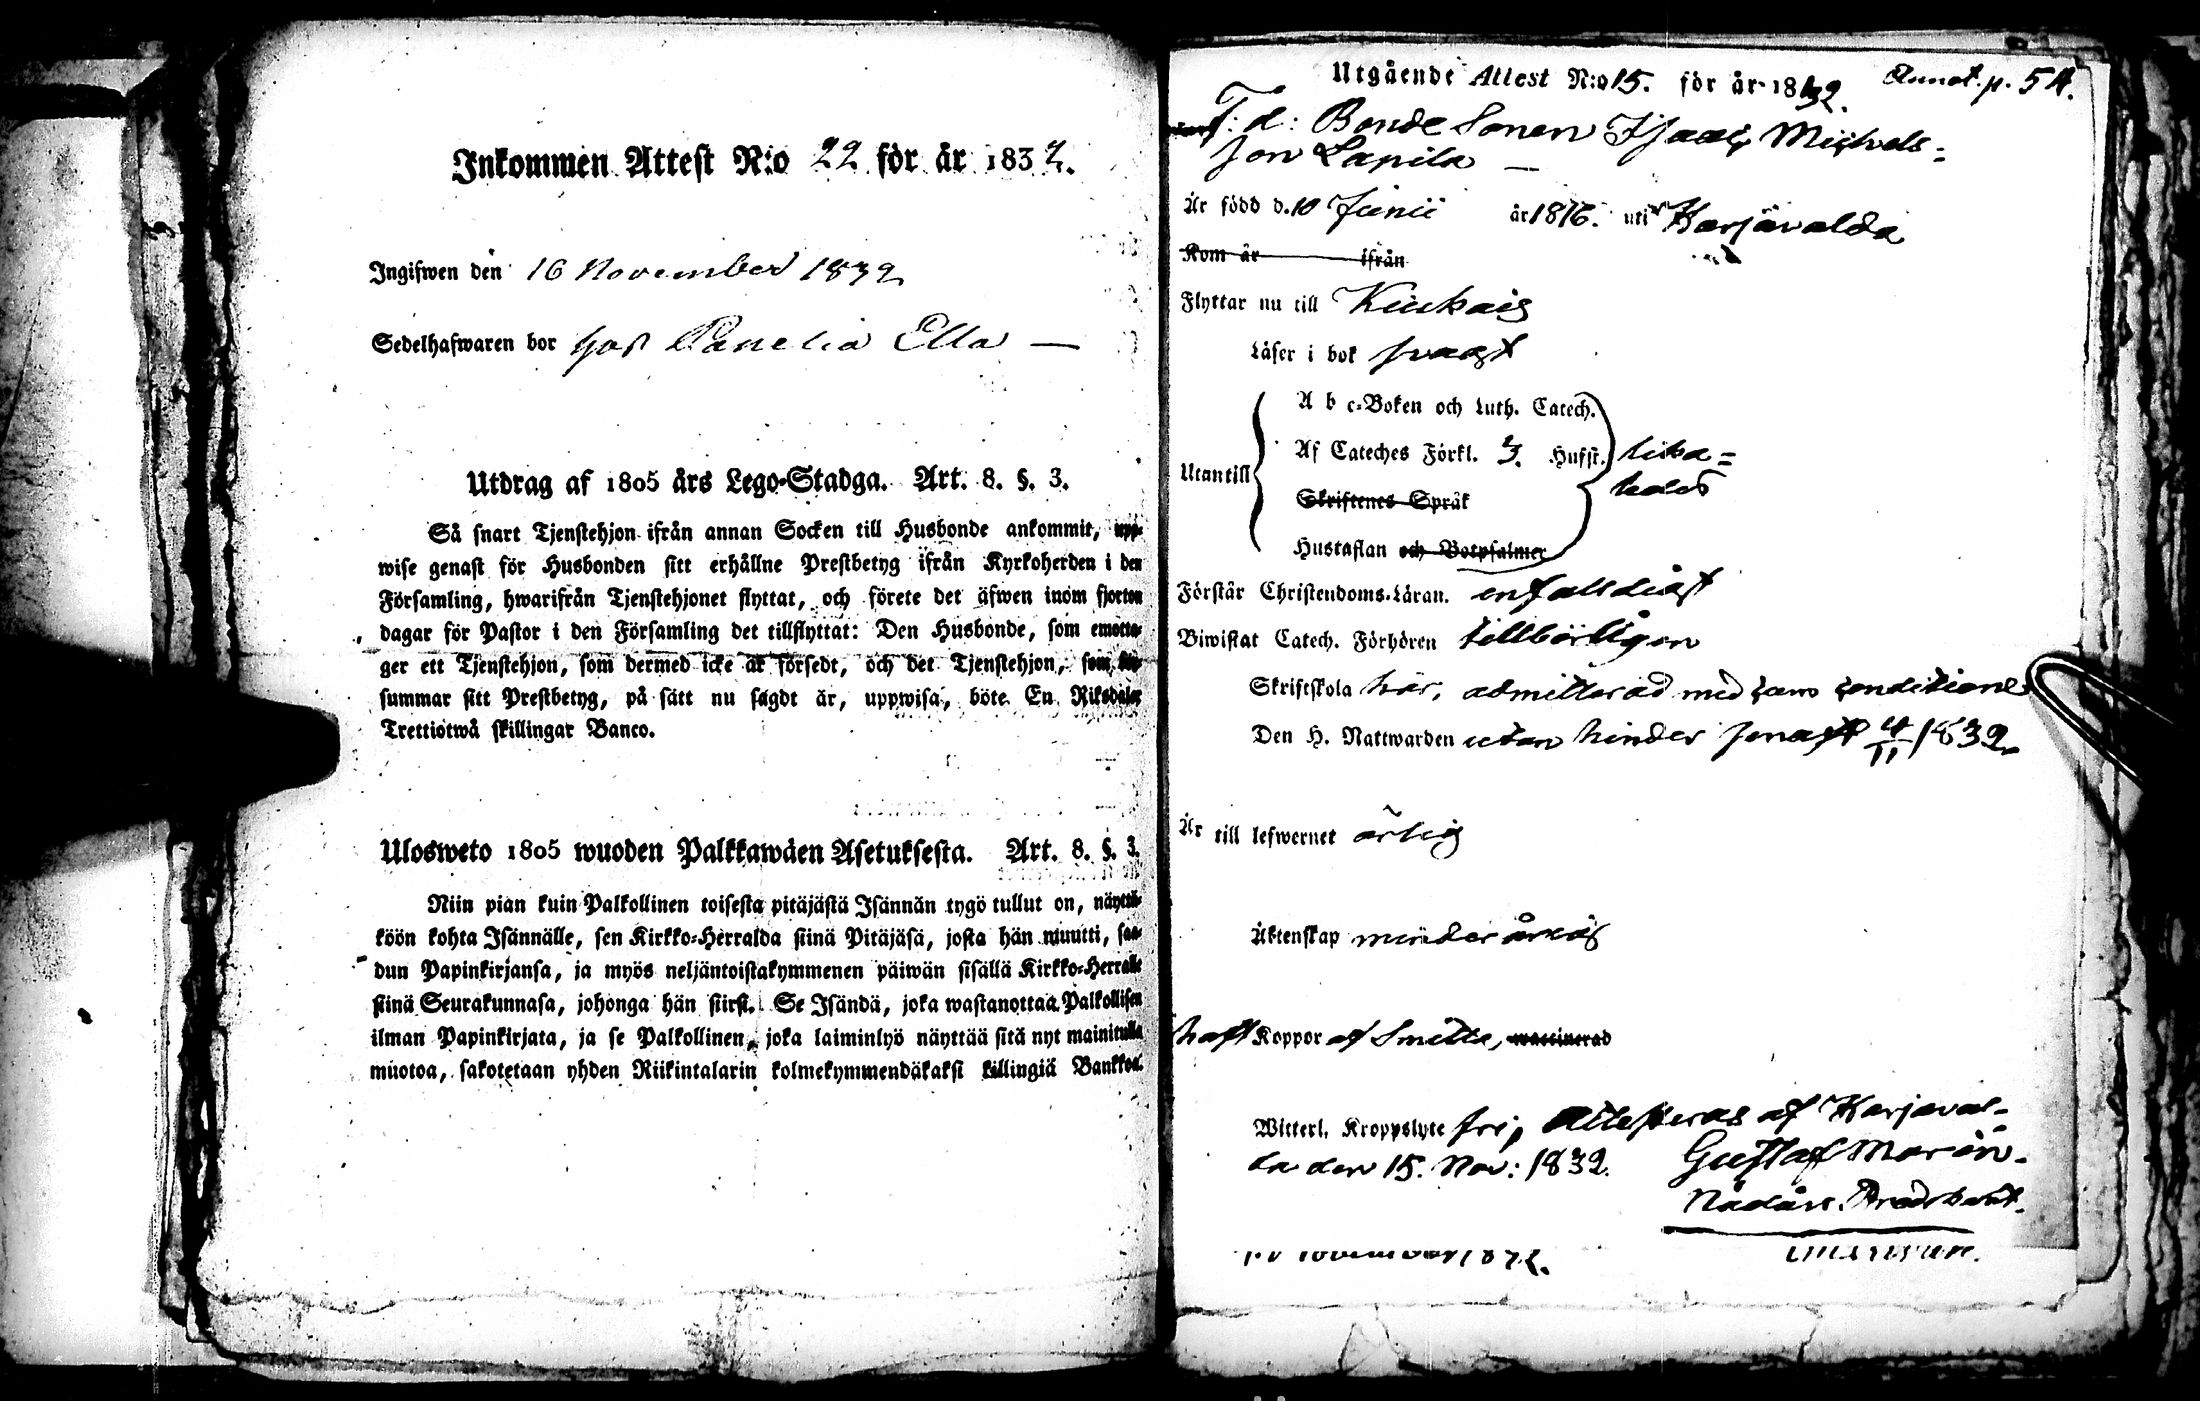 Inkommen Attest N:o 22 för år 1832.
Ingifwen den 16 November 1832
Sedelhafwaren bor hos Panelia Ella —
Utdrag af 1805 års Lego-Stadga. Art. 8. §. 3.
Så snart Tjenstehjon ifrån annan Socken till Husbonde ankommit, upp-
wise genast för Husbonden sitt erhållne Prestbetyg ifrån Kyrkoherden i den
Församling, hwarifrån Tjenstehjonet flyttat, och förete det äfwen inom fjorton
dagar för Pastor i den Församling det tillflyttat: Den Husbonde, som emotta-
ger ett Tjenstehjon, som dermed icke är försedt, och det Tjenstehjon, som för-
summar sitt Prestbetyg, på sätt nu sagdt är, uppwisa, böte En Riksdaler
Trettiotwå skillingar Banco.
Ulosweto 1805 wuoden Palkkawäen Asetuksesta. Art. 8. §. 3.
Niin pian kuin Palkollinen toisesta pitäjästä Isännän tygö tullut on, näyttä-
köön kohta Isännälle, sen Kirkko-Herralda siinä Pitäjäsä, josta hän muutti, saa-
dun Papinkirjansa, ja myös neljäntoistakymmenen päiwän sisällä Kirkko-Herralle
siinä Seurakunnasa, johonga hän siirsi. Se Isändä, joka wastanottaa Palkollisen
ilman Papinkirjata, ja se Palkollinen, joka laiminlyö näyttää sitä nyt mainitulla
muotoa, sakotetaan yhden Riikintalarin kolmekymmendäkaksi killingiä Bankkoa.
Utgående Attest N:o 15. för år 1832. Annot. p. 54.
T: d: Bonde Sonen Isaac Michels-
son Lapila —
Är född d. 10 Junii år 1816. uti Karjavalda
Kom år ifrån
Flyttar nu till Kiukais
Läser i bok svagt
A b c-Boken och Luth. Catech.
Utantill Af Cateches Förkl. 3. Hufst. lika-
ledes
Skriftenes Språk
Hustaflan och Botpsalmer
Förstår Christendoms-Läran. enfalldigt
Biwistat Catech. Förhören tillbörligen
Skriftskola här, admitterad med
Den H. Nattwarden utan hinder senast 4/11 1832.
Är till lefwernet ärlig
Äktenskap minderårig
haft Koppor af Smitta, waccinerad
Witterl. Kroppslyte fri, Attesteras af Karjaval-
da den 15. Nov: 1832. Gustaf Morén.
Nådårs Predikant.